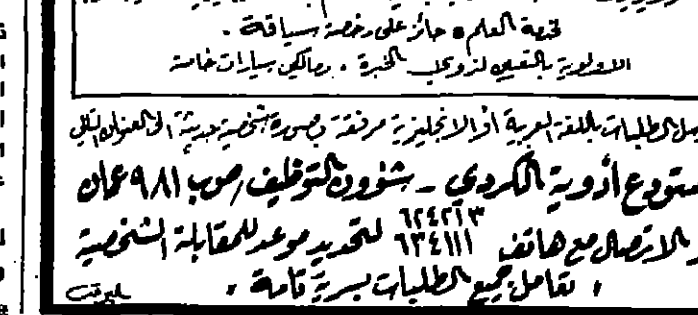 لخدمة العلم • حائز على رخصة سياقة .
الاولوية بالتعيين لذوي الخبرة ، ومالكي سيارات خاصة
الطلبات باللغة العربية أو الانجليزية مرفقة بصورة شخصية حديثة الى العنوان التالي
مستودع أدوية الكردي - شؤون التوظيف ص.ب ٩٨١ عمان
الاتصال مع هاتف ٦٢٤٢١٣ ٦٣٤١١١ لتحديد موعد للمقابلة الشخصية
، تعامل جميع الطلبات بسرية تامة ،